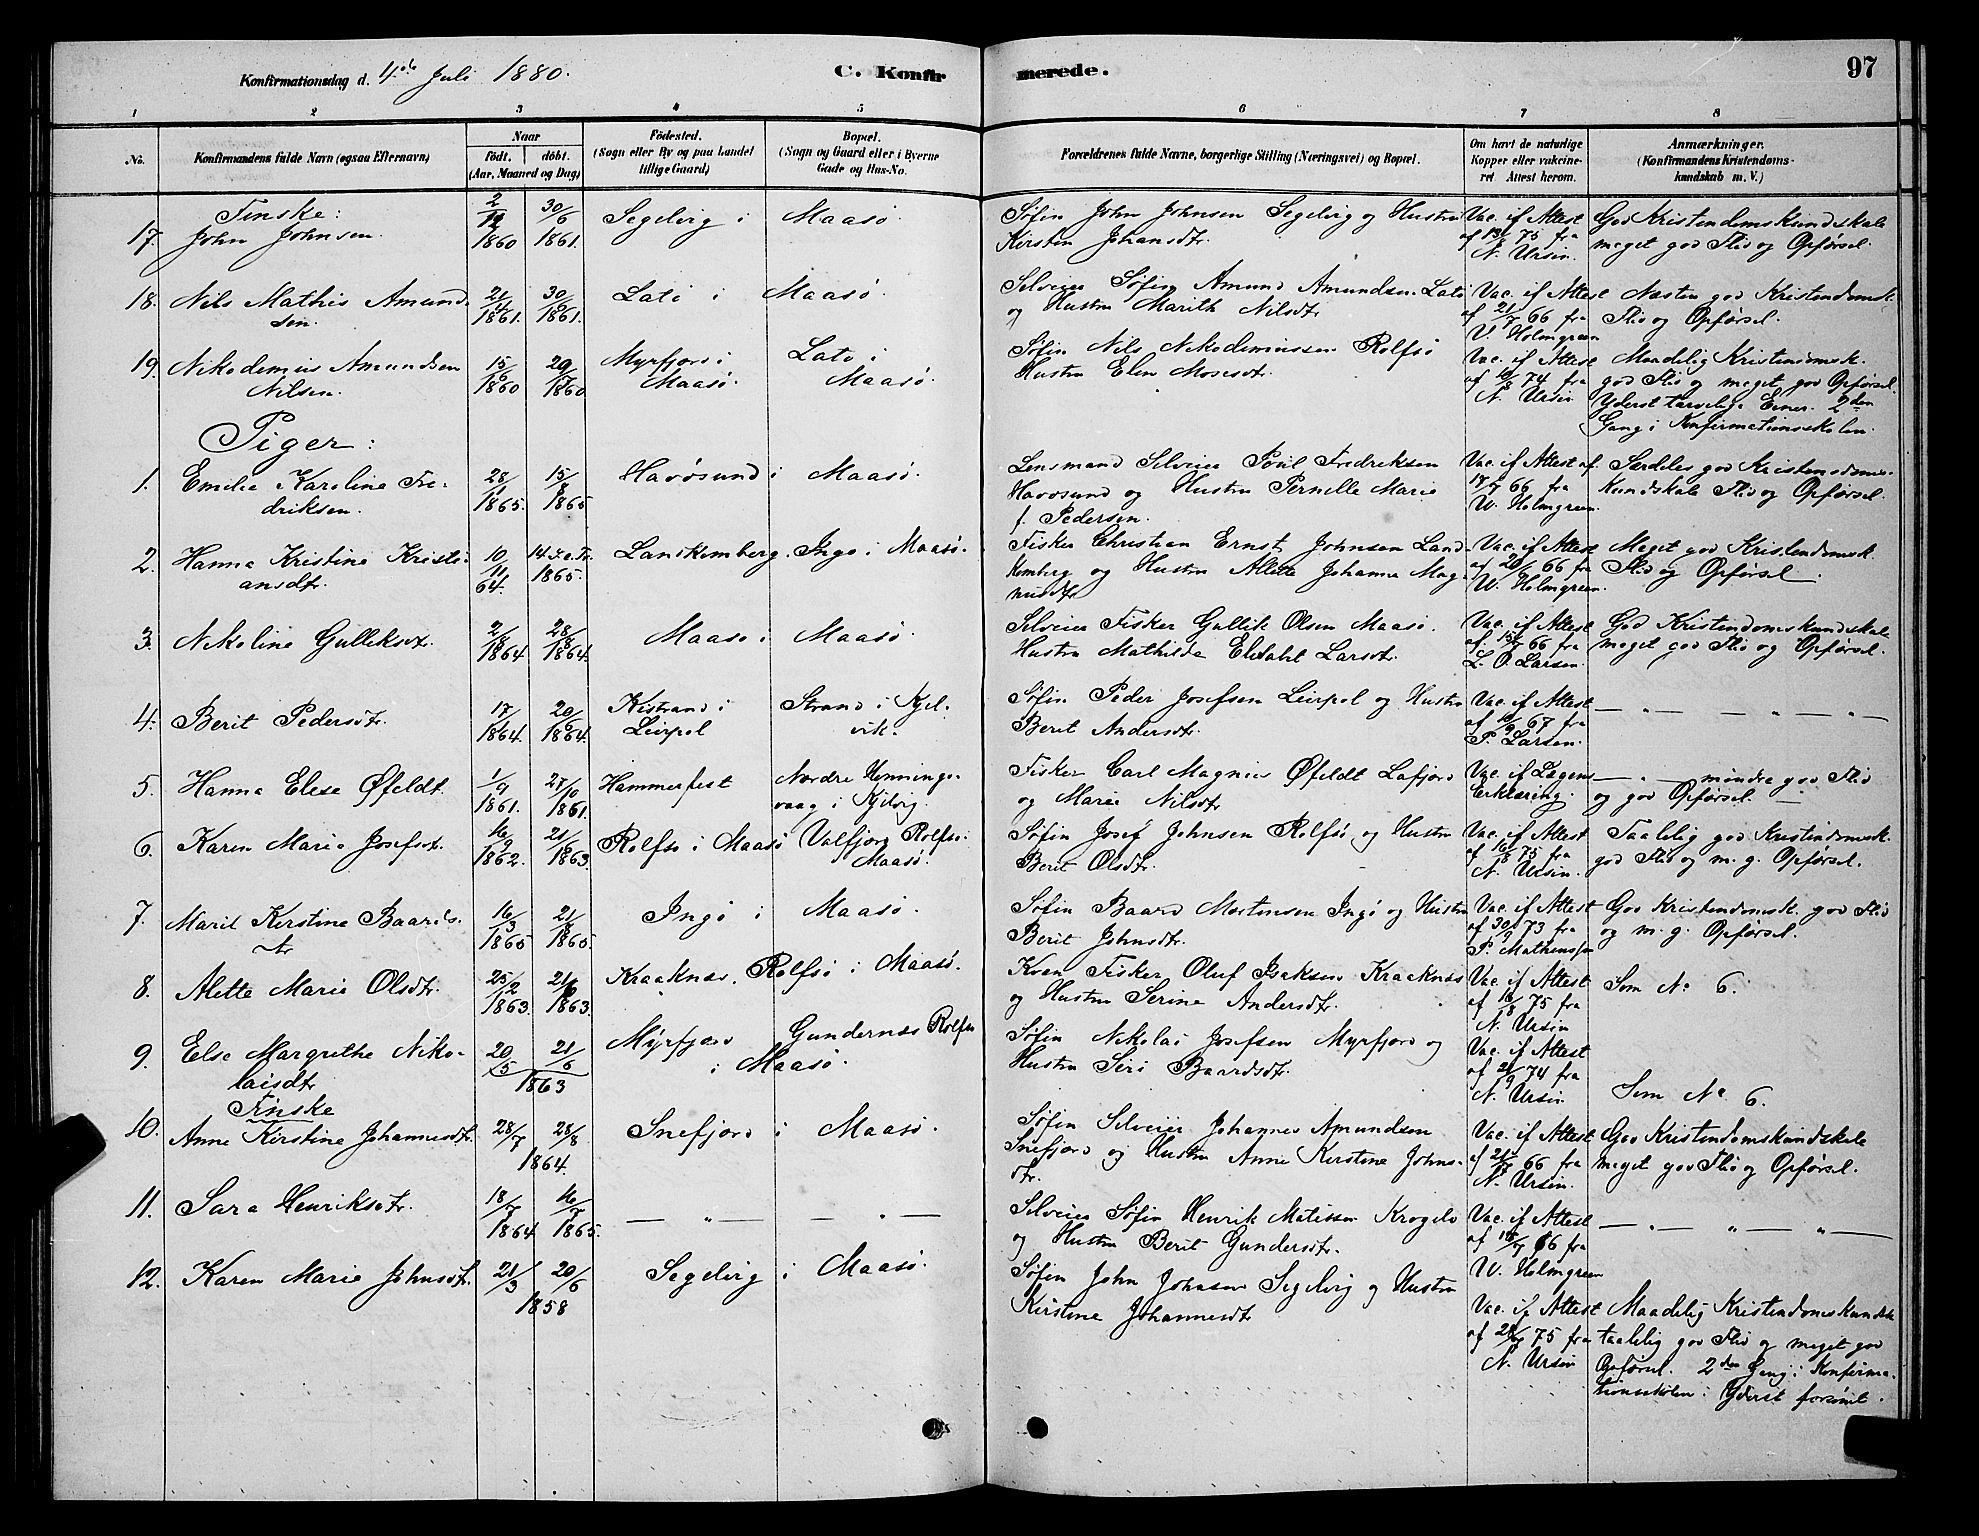 Konfirmationsdag d. 4de Juli 1880. C. Konfirmerede. 97
1 2 3 4 5 6 7 8
No. Konfirmandens fulde Navn (ogsaa Efternavn) Naar født. døbt. (Aar, Maaned og Dag) Fødested. (Sogn eller By og paa Landet tillige Gaard) Bopæl. (Sogn og Gaard eller i Byerne Gade og Hus-No. Forældrenes fulde Navne, borgerlige Stilling (Næringsvei) og Bopæl. Om havt de naturlige Kopper eller vakcineret. Attest herom. Anmærkninger. (Konfirmandens Kristendomskundskab m. V.)
Finske:
17. John Johnsen. 2/12 1860 30/6 1861. Segelvig i Maasø. Søfin John Johnsen Segelvig og Hustru
Kirsten Johansdtr. Vac. if Attest af 13/8 75 fra N. Ursin. God Kristendomskundskab meget god Flid og Opførsel.
18. Nils Mathis Amundsen. 1861. 30/6 1861. Latø i Maasø. Selveier Søfin Amund Amundsen Latø
og Hustru Marith Nilsdtr. Vac. if Attest af 21/7 66 fra V. Holmgreen Næsten god Kristendomsk. Flid og Opførsel.
19. Nikodemus Amundsen Nilsen. 15/6 1860 1860. Myrfjord i Maasø. Latø i Maasø. Søfin Nils Nikodemussen Rolfsø
Hustru Elen Mosesdtr. Vac. if Attest af 74 fra N. Ursin Maadelig Kristendomsk. god Flid og meget god Opførsel. Yderst tarvelige Evner. 2den Gang i Konfirmationsskolen.
Piger:
1. Emilie Karoline Fredriksen. 28/1 1865. 15/8 1865 Havøsund i Maasø. Lensmand Selveier Poul Fredriksen
Havøsund og Hustru Pernille Marie
f. Pedersen. Vac. if Attest af 17/7 66 fra W. Holmgreen. Særdeles god Kristendomskundskab Flid og Opførsel.
2. Hanna Kristine Kristiansdtr. 10/11 64. 14 1865. Landkomberg. Ingø i Maasø. Fisker Christian Ernst Johnsen Landkomberg og Hustru Alette Johanna Magnusdtr Vac. if Attest af 66 fra W. Holmgreen. Meget god Kristendomsk. Flid og Opførsel.
3. Nikoline Gulliksdtr. 2/8 1864 28/8 1864. Maasø i Maasø. Selveier Fisker Gullik Olsen Maasø.
Hustru Mathilde Elisabet Larsdtr. Vac. if Attest af 66 fra L. O. Larsen. God Kristendomskundskab meget god Flid og Opførsel.
4. Berit Pedersdtr. 1864. 20/6 1864. Kistrand i Leirpol Strand i Kjelvik. Søfin Peder Josefsen Leirpol og Hustru
Berit Andersdtr. Vac. if Attest af 67 fra P. Larsen. — „ — „ — „ —
5. Hanna Elese Øfeldt. 1/9 1861. 27/10 1861. Hammerfest Nordre Honningsvaag i Kjelvig. Fisker Carl Magnus Øfeldt Lafjord
og Marie Nilsdtr. Vac. if Lægens Erklæring. — „ — mindre god Flid og god Opførsel. —
6. Karen Marie Josefsdtr. 16/9 1862. 21/6 1863. Rolfsø i Maasø Valfjord Rolfsø i Maasø. Søfin Josef Johnsen Rolfsø og Hustru
Berit Olsdtr. Vac. if Attest af 16/8 75 fra N. Ursin. Taalelig god Kristendomsk. god Flid og m. g. Opførsel.
7. Marit Kirstine Baardsdtr 16/3 1865 21/ 1865. Ingø i Maasø. Søfin Baard Mortensen Ingø og Hustru
Berit Johnsdtr. Vac. if Attest af 30/9 73 fra P. Mathisen God Kristendomsk. god Flid og m. g. Opførsel.
8. Alette Marie Olsdtr. 25/2 1863. 21/6 1863. Kraaknæs. Rolfsø i Maasø. Kven Fisker Oluf Isaksen Kraaknæs
og Hustru Serine Andersdtr. Vac. if Attest af 16/8 75 fra N. Ursin Som No 6.
9. Else Margrethe Nikolaisdtr 20/5 21/6 1863 Myrfjord Gundernæs Rolfsø i Maasø. Søfin Nikolai Josefsen Myrfjord og
Hustru Siri Baardsdtr. Vac. if Attest af 74 fra N. Ursin Som No 6.
Finske
10. Anne Kirstine Johannesdtr. 28/7 28/8 1864. Snefjord i Maasø. Søfin Selveier Johannes Amundsen
Snefjord og Hustru Anne Kirstine Johnsdtr. Vac. if Attest af 66 fra N. Ursin. God Kristendomskundskab meget god Flid og Opførsel.
11. Sara Henriksdtr. 18/7 1864 16/7 1865. — „ — — „ — Selveier Søfin Henrik Matissen Krogelv
og Hustru Berit Gundersdtr. Vac. if Attest af 66 fra W. Holmgreen — „ — „ — „ —
12. Karen Marie Johnsdtr. 21/3 20/6 1858 Segelvig i Maasø. Søfin John Johnsen Segelvig og Hustru
Kirstine Johannesdtr Vac. if Attest af 75 fra N. Ursin Maadelig Kristendomskundsk. taalelig god Flid og meget god Opførsel. 2den Gang i Konfirmationsskolen. Yderst forsømt.